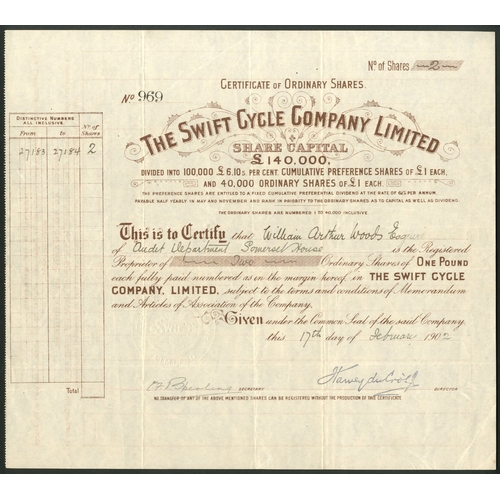 Nº of Shares 2
CERTIFICATE OF ORDINARY SHARES.
Nº 969
THE SWIFT CYCLE COMPANY LIMITED
SHARE CAPITAL
£140,000,
DIVIDED INTO 100,000 £6.10s. PER CENT. CUMULATIVE PREFERENCE SHARES OF £1 EACH,
AND 40,000 ORDINARY SHARES OF £1 EACH.
THE PREFERENCE SHARES ARE ENTITLED TO A FIXED CUMULATIVE PREFERENTIAL DIVIDEND AT THE RATE OF 6½ PER ANNUM,
PAYABLE HALF YEARLY IN MAY AND NOVEMBER AND RANK IN PRIORITY TO THE ORDINARY SHARES AS TO CAPITAL AS WELL AS DIVIDEND.
THE ORDINARY SHARES ARE NUMBERED 1 TO 40,000 INCLUSIVE
DISTINCTIVE NUMBERS
ALL INCLUSIVE.
Nº of Shares
From to
27183 27184 2
Total
This is to Certify that William Arthur Woods Esquire
of Audit Department Somerset House is the Registered
Proprietor of Two Ordinary Shares of ONE POUND
each fully paid numbered as in the margin hereof in THE SWIFT CYCLE
COMPANY, LIMITED, subject to the terms and conditions of Memorandum
and Articles of Association of the Company.
Given under the Common Seal of the said Company
this 17th day of February 1902
SECRETARY
Harvey du Cros Jr
DIRECTOR
NO TRANSFER OF ANY OF THE ABOVE MENTIONED SHARES CAN BE REGISTERED WITHOUT THE PRODUCTION OF THIS CERTIFICATE.